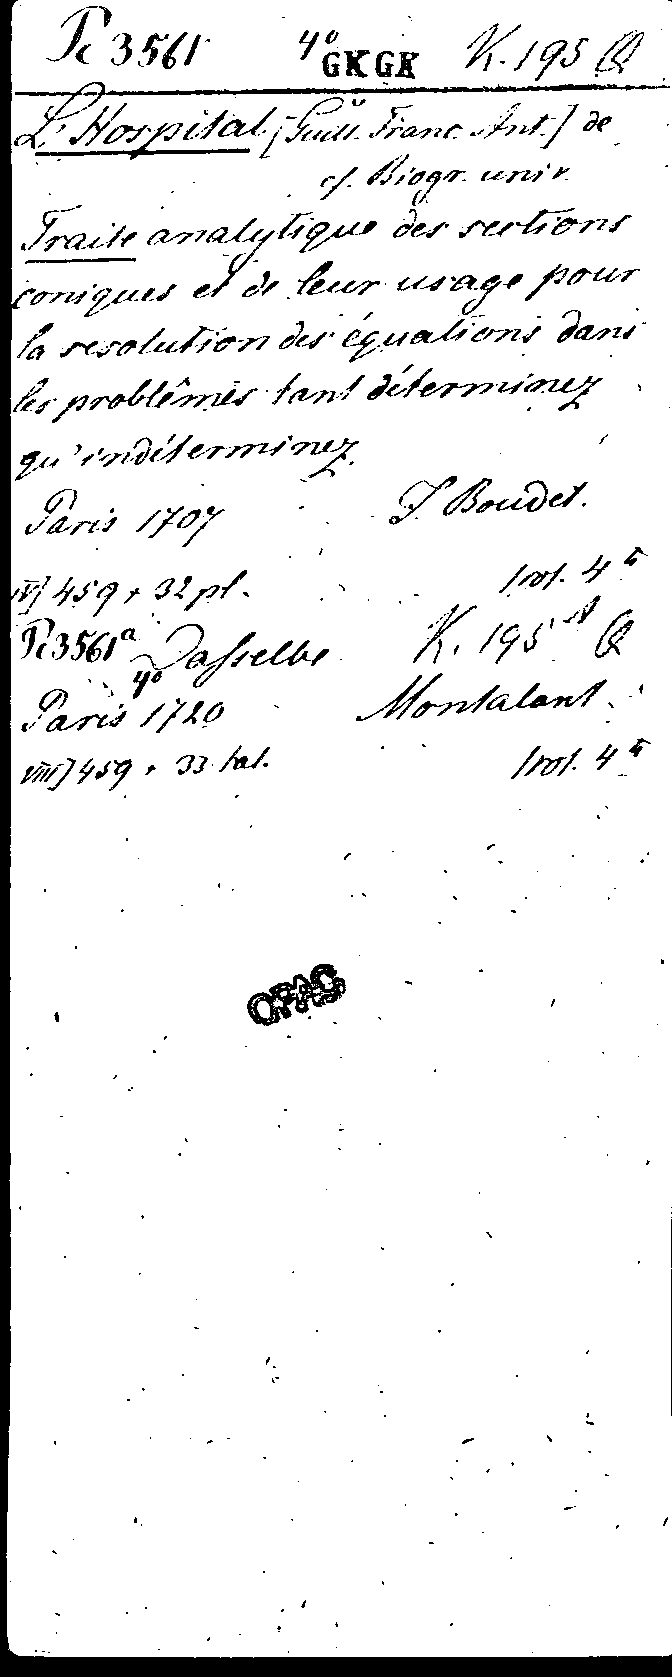 Pc 3561 4° GKGK K. 195 Q
L'Hospital [Guill. Franc. Ant.] de
cf. Biogr. univ.
Traité analytique des sections
coniques et de leur usage pour
la resolution des équations dans
les problêmes tant déterminez
qu'indéterminez.
Paris 1707 J. Boudot.
IV] 459 + 32 pl. 1 vol. 4°
Pc 3561a 4° Dasselbe K. 195 A Q
Paris 1720 Montalant
VIII] 459 + 33 tal. 1 vol. 4°
OPAC